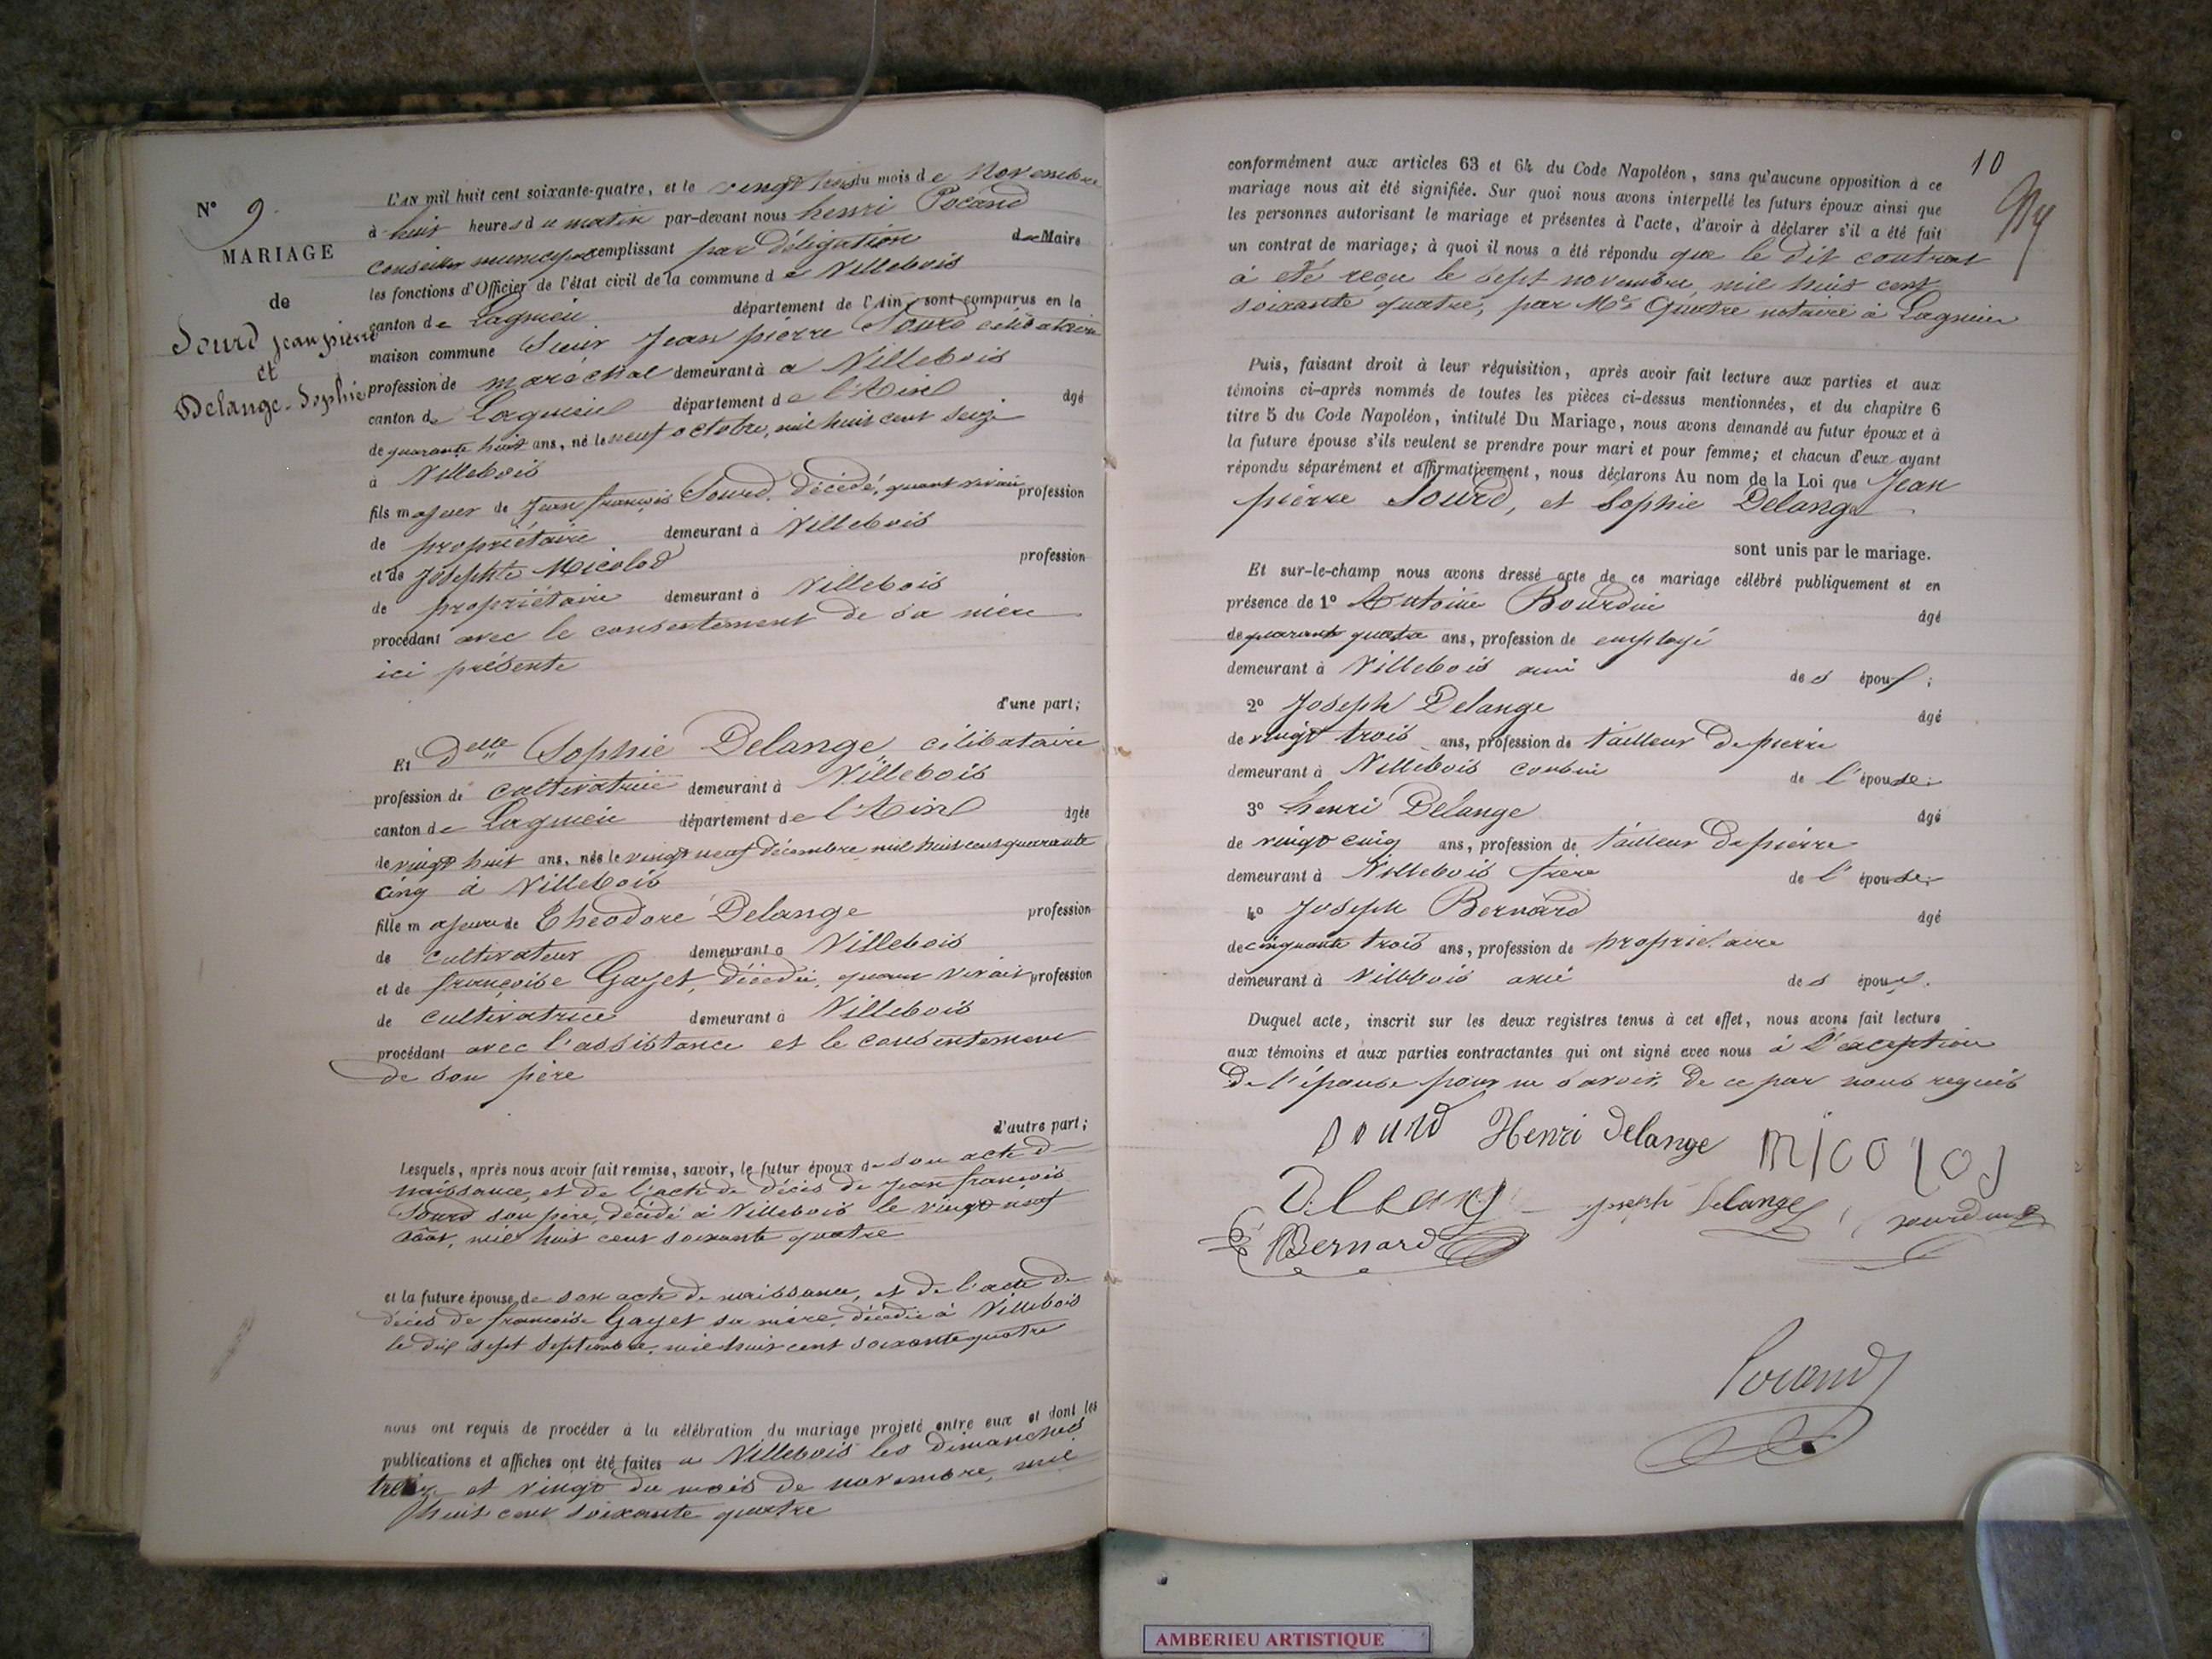 N° 9.
MARIAGE
de
Sourd jean pierre
et
Delange Sophie
L'AN mil huit cent soixante-quatre, et le vingt du mois de Novembre
à huit heures du matin par-devant nous henri Pocand
conseiller municipal remplissant par déligation de Maire
les fonctions d'Officier de l'état civil de la commune de Villebois
canton de Lagnieu département de l'Ain, sont comparus en la
maison commune Sieur Jean pierre Sourd célibataire
profession de maréchal demeurant à a Villebois
canton de Lagnieu département de l'Ain âgé
de quarante huit ans, né le neuf octobre, mil huit cent seize
à Villebois
fils majeur de Jean françois Sourd, décédé, quant vivait profession
de propriétaire demeurant à Villebois
et de Josephte Micolod profession
de propriétaire demeurant à Villebois
procédant avec le consentement de sa mère
ici présente
d'une part;
Et Delle Sophie Delange, célibataire
profession de cultivatrice demeurant à Villebois
canton de Lagnieu département de l'Ain âgée
de vingt huit ans, née le vingt neuf décembre mil huit cent quarante
cinq à Villebois
fille majeure de Théodore Delange profession
de cultivateur demeurant à Villebois
et de françoise Gayet, décédée, quant vivait profession
de cultivatrice demeurant à Villebois
procédant avec l'assistance et le consentement
de son père
d'autre part;
Lesquels, après nous avoir fait remise, savoir, le futur époux de son acte de
naissance, et de l'acte de décès de Jean françois
Sourd son père, décédé à Villebois le vingt neuf
août, mil huit cent soixante quatre
et la future épouse, de son acte de naissance, et de l'acte de
décès de françoise Gayet sa mère, décédée à Villebois
le dix sept septembre, mil huit cent soixante quatre
nous ont requis de procéder à la célébration du mariage projeté entre eux et dont les
publications et affiches ont été faites a Villebois les dimanches
treize et vingt du mois de novembre, mil
huit cent soixante quatre
10
conformément aux articles 63 et 64 du Code Napoléon, sans qu'aucune opposition à ce
mariage nous ait été signifiée. Sur quoi nous avons interpellé les futurs époux ainsi que
les personnes autorisant le mariage et présentes à l'acte, d'avoir à déclarer s'il a été fait
un contrat de mariage; à quoi il nous a été répondu que le dit contrat
à été reçu le sept novembre, mil huit cent
soixante quatre, par Me Quatre notaire à Lagnieu
Puis, faisant droit à leur réquisition, après avoir fait lecture aux parties et aux
témoins ci-après nommés de toutes les pièces ci-dessus mentionnées, et du chapitre 6
titre 5 du Code Napoléon, intitulé Du Mariage, nous avons demandé au futur époux et à
la future épouse s'ils veulent se prendre pour mari et pour femme; et chacun d'eux ayant
répondu séparément et affirmativement, nous déclarons Au nom de la Loi que Jean
pierre Sourd, et Sophie Delange
sont unis par le mariage.
Et sur-le-champ nous avons dressé acte de ce mariage célébré publiquement et en
présence de 1° Antoine Bourdin âgé
de quarante quatre ans, profession de employé
demeurant à Villebois ami des époux;
2° Joseph Delange âgé
de vingt trois ans, profession de tailleur de pierre
demeurant à Villebois cousin de l'épouse;
3° henri Delange âgé
de vingt cinq ans, profession de tailleur de pierre
demeurant à Villebois frère de l'épouse;
4° Joseph Bernard âgé
de cinquante trois ans, profession de propriétaire
demeurant à Villebois ami des époux.
Duquel acte, inscrit sur les deux registres tenus à cet effet, nous avons fait lecture
aux témoins et aux parties contractantes qui ont signé avec nous à l'exception
De l'épouse pour ne savoir, de ce par nous requis
Sourd Henri Delange Micolod
Joseph Delange
Bernard
Pocand
AMBERIEU ARTISTIQUE